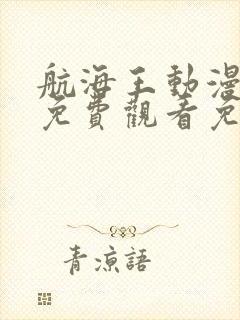 航海王動漫
免費觀看免
青涼語